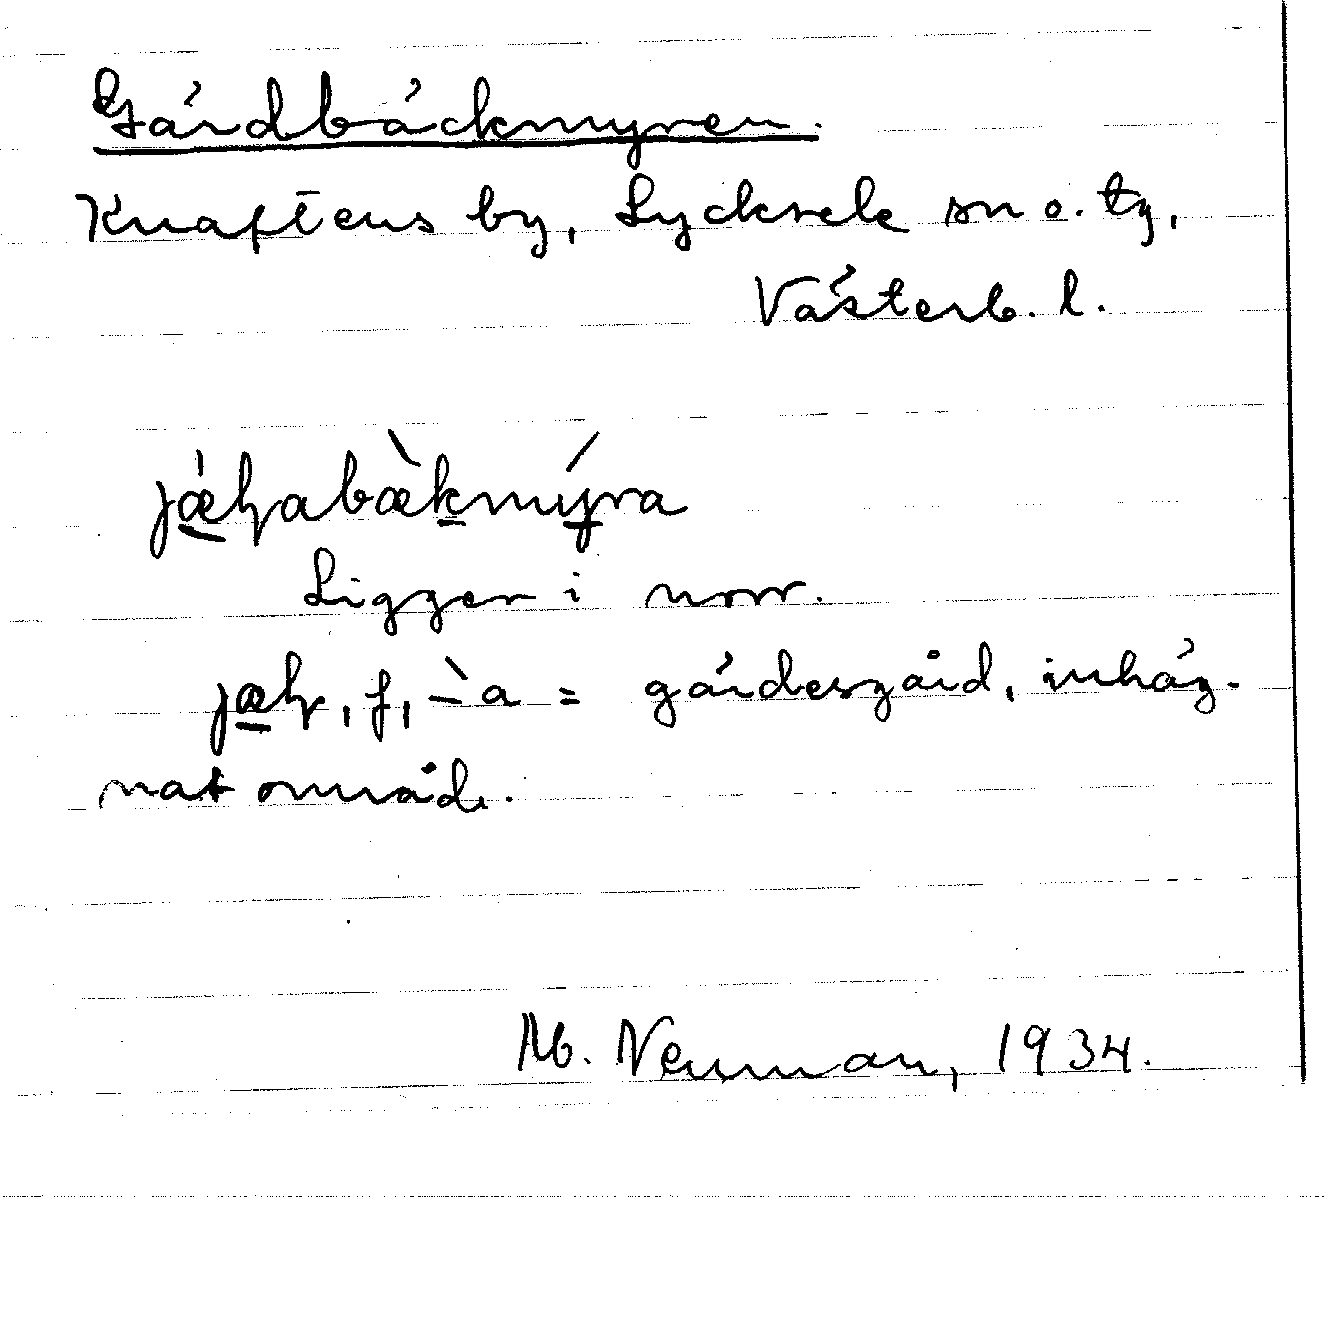 Gärdbäckmyren.
Knaftens by, Lycksele sn o. tg,
Västerb. l.
Ligger i norr.
, f, -̀a = gärdesgård, inhäg-
nat område.
M. Neuman, 1934.